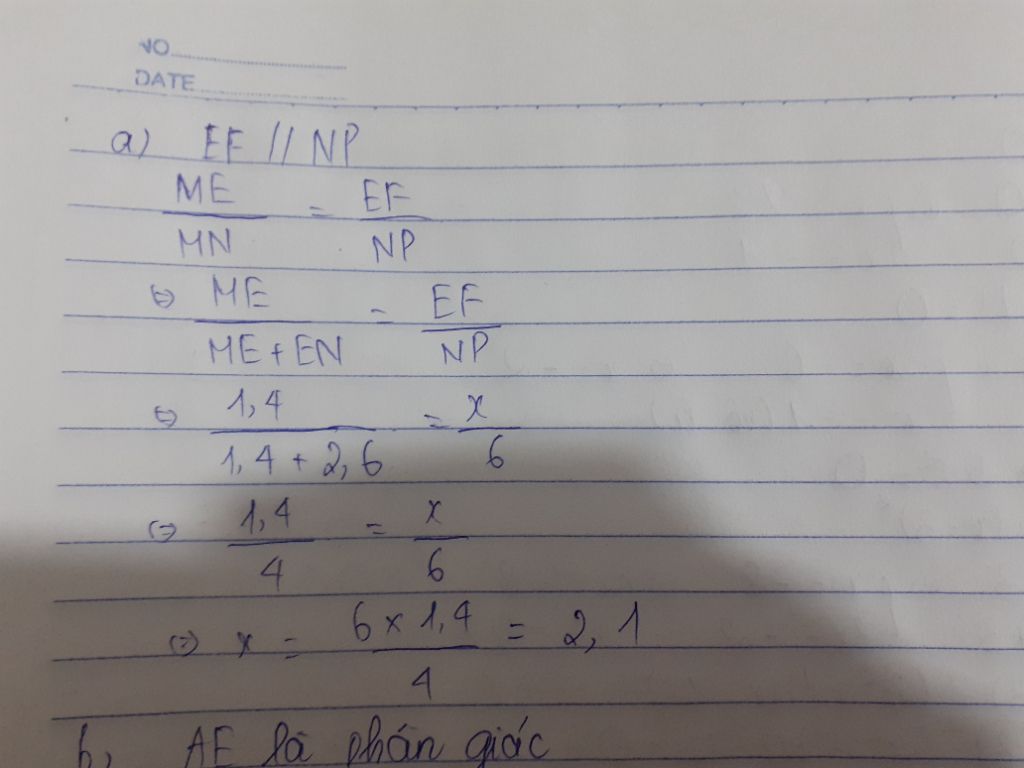 NO
DATE
a) EF // NP
ME/MN = EF/NP
⇔ ME/(ME + EN) = EF/NP
⇔ 1,4/(1,4 + 2,6) = x/6
⇔ 1,4/4 = x/6
⇔ x = (6 x 1,4)/4 = 2,1
b, AE là phân giác